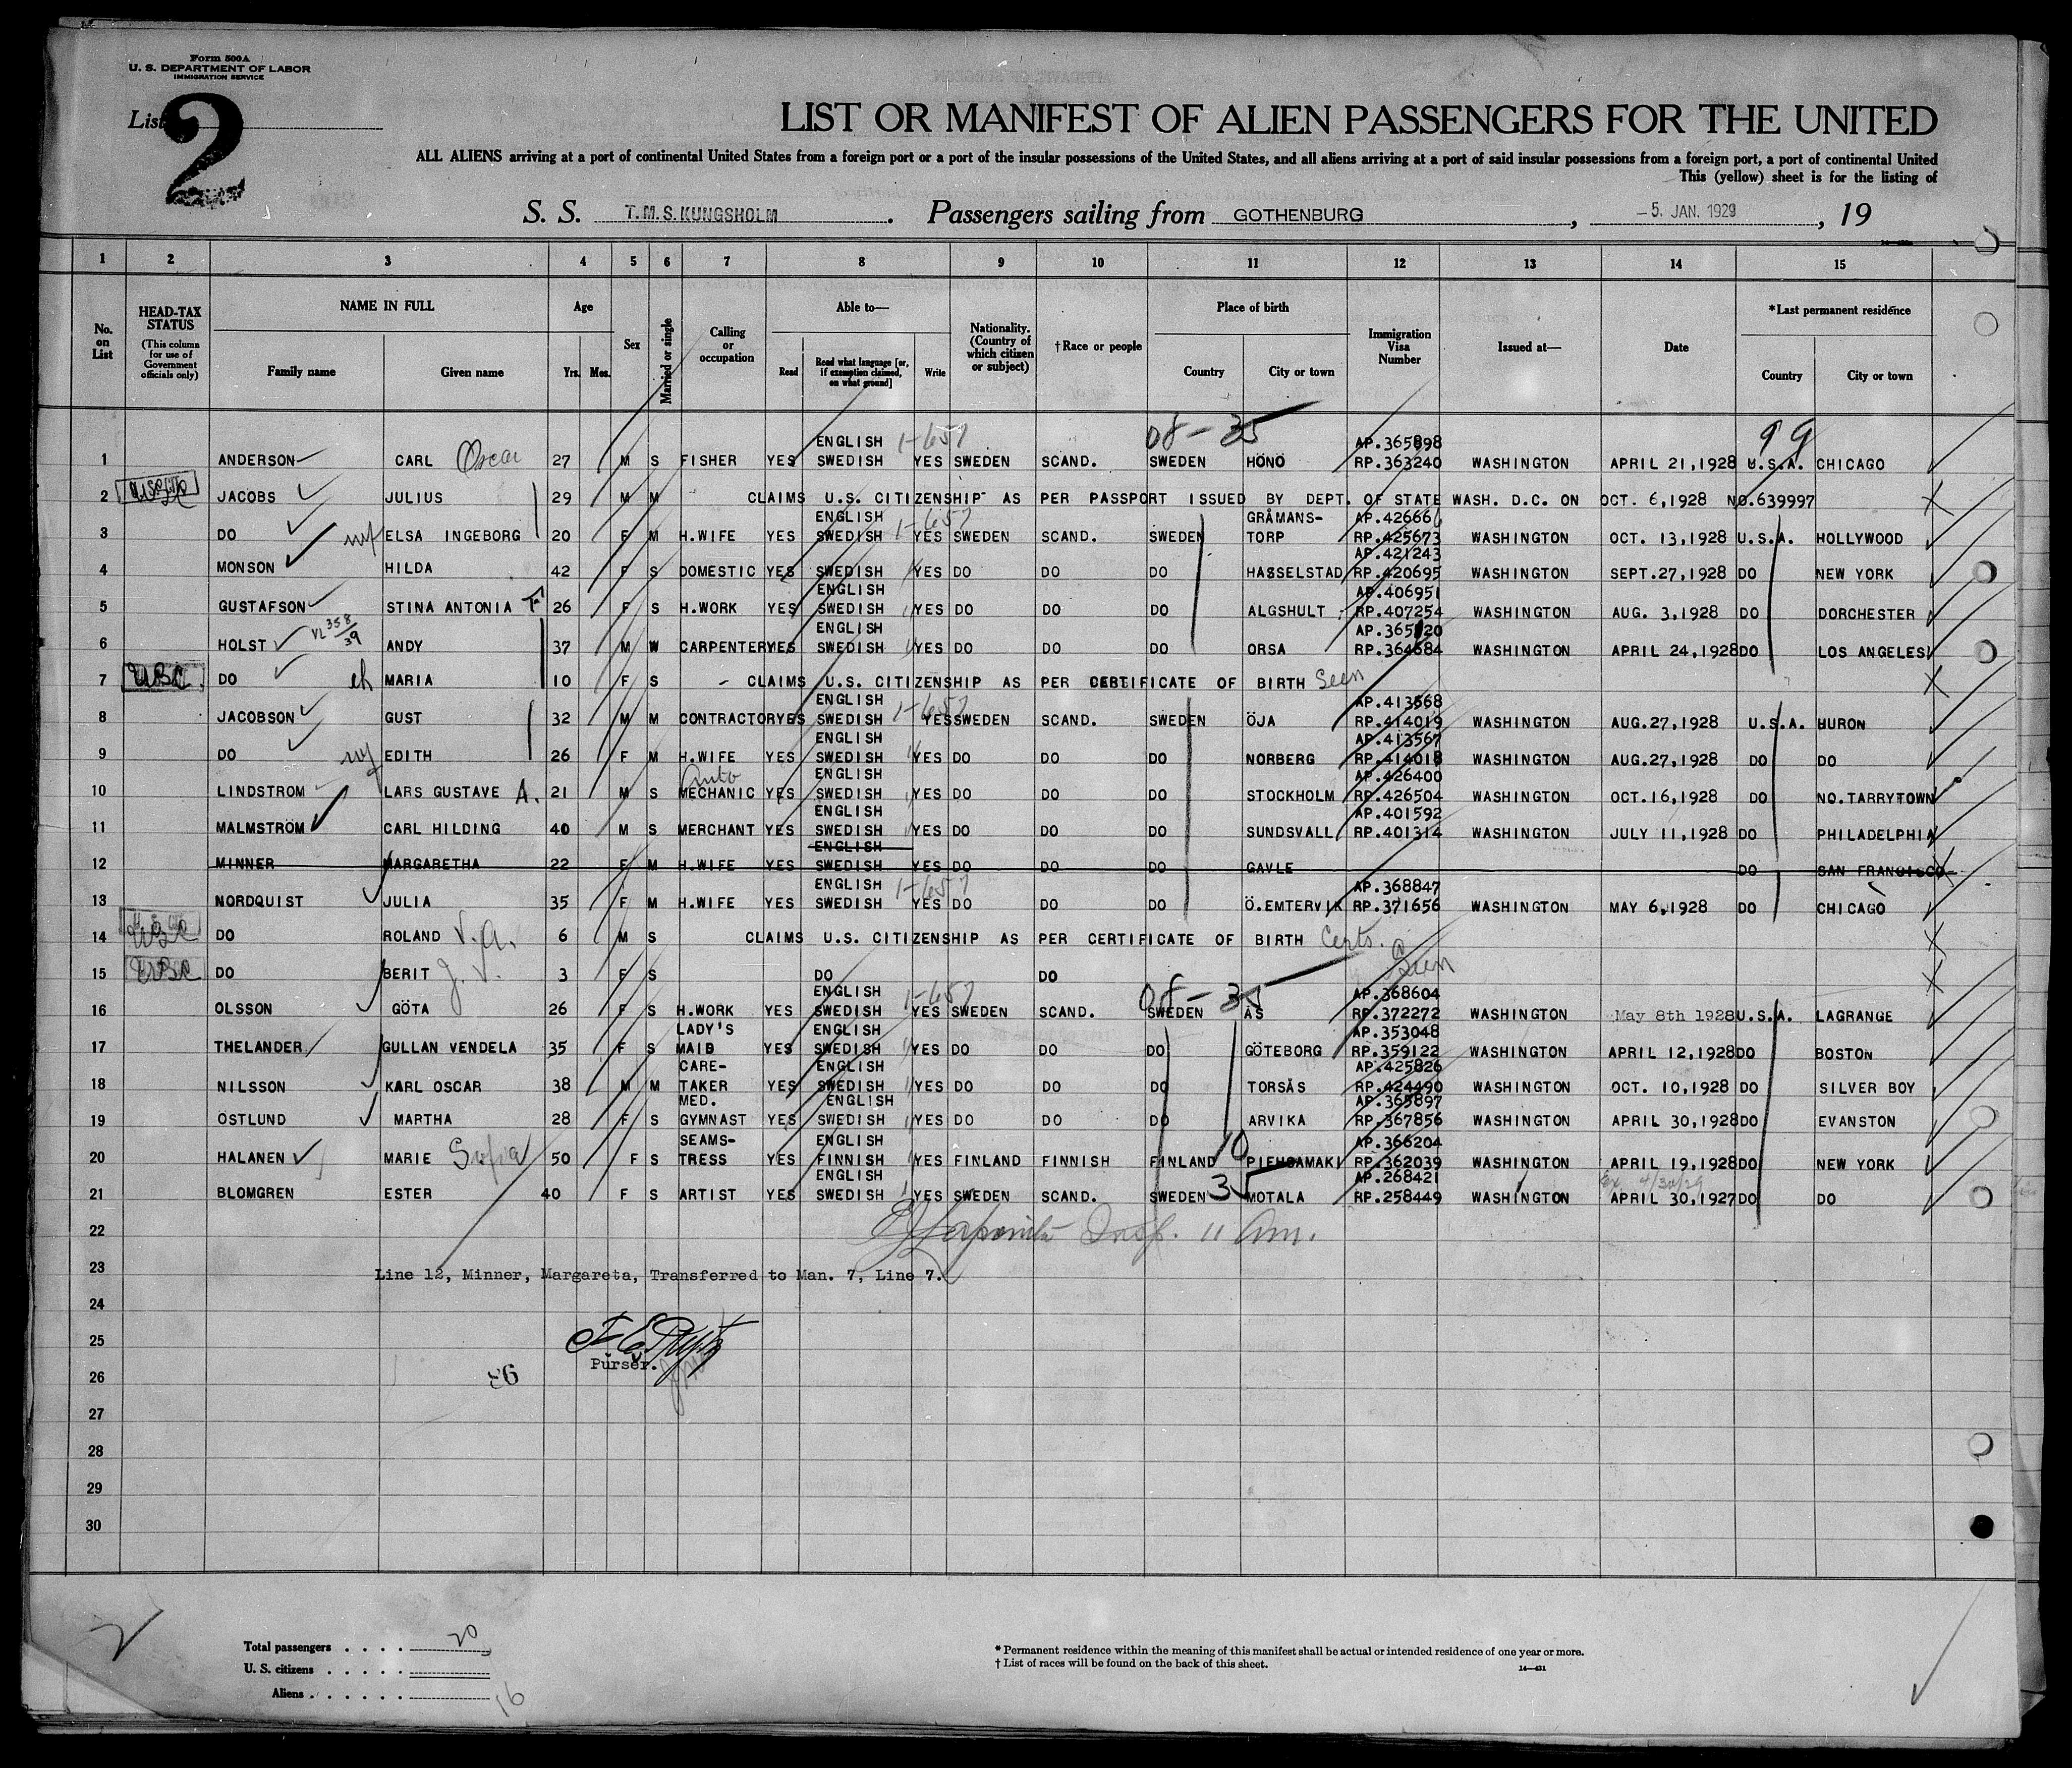 Form 500A
U. S. DEPARTMENT OF LABOR
IMMIGRATION SERVICE
List 2
LIST OR MANIFEST OF ALIEN PASSENGERS FOR THE UNITED
ALL ALIENS arriving at a port of continental United States from a foreign port or a port of the insular possessions of the United States, and all aliens arriving at a port of said insular possessions from a foreign port, a port of continental United
This (yellow) sheet is for the listing of
S. S. T.M.S. KUNGSHOLM . Passengers sailing from GOTHENBURG , -5. JAN. 1929 , 19
1 2 3 4 5 6 7 8 9 10 11 12 13 14 15
No. on List
HEAD-TAX STATUS (This column for use of Government officials only)
NAME IN FULL Family name Given name
Age Yrs. Mos.
Sex
Married or single
Calling or occupation
Able to— Read Read what language [or, if exemption claimed, on what ground] Write
Nationality. (Country of which citizen or subject)
†Race or people
Place of birth Country City or town
Immigration Visa Number
Issued at—
Date
*Last permanent residence Country City or town
ENGLISH 1-657 08-35 AP.365898 99
1 ANDERSON CARL Oscar 27 M S FISHER YES SWEDISH YES SWEDEN SCAND. SWEDEN HÖNÖ RP.363240 WASHINGTON APRIL 21,1928 U.S.A. CHICAGO
2 JACOBS JULIUS 29 M M CLAIMS U.S. CITIZENSHIP AS PER PASSPORT ISSUED BY DEPT. OF STATE WASH. D.C. ON OCT. 6,1928 NO.639997
ENGLISH 1-657 GRÅMANS- AP.42666
3 DO wf ELSA INGEBORG 20 F M H.WIFE YES SWEDISH YES SWEDEN SCAND. SWEDEN TORP RP.425673 WASHINGTON OCT. 13,1928 U.S.A. HOLLYWOOD
AP.421243
4 MONSON HILDA 42 F S DOMESTIC YES SWEDISH YES DO DO DO HASSELSTAD RP.420695 WASHINGTON SEPT.27,1928 DO NEW YORK
ENGLISH AP.406951
5 GUSTAFSON STINA ANTONIA F 26 F S H.WORK YES SWEDISH YES DO DO DO ALGSHULT RP.407254 WASHINGTON AUG. 3,1928 DO DORCHESTER
VL 358/39 ENGLISH AP.365120
6 HOLST ANDY 37 M W CARPENTER YES SWEDISH YES DO DO DO ORSA RP.364684 WASHINGTON APRIL 24,1928 DO LOS ANGELES
7 USC DO ch MARIA 10 F S - CLAIMS U.S. CITIZENSHIP AS PER CERTIFICATE OF BIRTH Seen
ENGLISH 1-657 AP.413568
8 JACOBSON GUST 32 M M CONTRACTOR YES SWEDISH YES SWEDEN SCAND. SWEDEN ÖJA RP.414019 WASHINGTON AUG.27,1928 U.S.A. HURON
ENGLISH AP.413567
9 DO wf EDITH 26 F M H.WIFE YES SWEDISH YES DO DO DO NORBERG RP.414018 WASHINGTON AUG.27,1928 DO DO
Auto ENGLISH AP.426400
10 LINDSTROM LARS GUSTAVE A. 21 M S MECHANIC YES SWEDISH YES DO DO DO STOCKHOLM RP.426504 WASHINGTON OCT.16,1928 DO NO.TARRYTOWN
ENGLISH AP.401592
11 MALMSTRÖM CARL HILDING 40 M S MERCHANT YES SWEDISH YES DO DO DO SUNDSVALL RP.401314 WASHINGTON JULY 11,1928 DO PHILADELPHIA
ENGLISH
12 MINNER MARGARETHA 22 F M H.WIFE YES SWEDISH YES DO DO DO GAVLE DO SAN FRANCISCO
ENGLISH 1-657 AP.368847
13 NORDQUIST JULIA 35 F M H.WIFE YES SWEDISH YES DO DO DO Ö.EMTERVIK RP.371656 WASHINGTON MAY 6,1928 DO CHICAGO
14 USC DO ROLAND V.A. 6 M S CLAIMS U.S. CITIZENSHIP AS PER CERTIFICATE OF BIRTH Certs.
15 USC DO BERIT J. V. 3 F S DO DO Seen
ENGLISH 1-657 08-35 AP.368604
16 OLSSON GÖTA 26 F S H.WORK YES SWEDISH YES SWEDEN SCAND. SWEDEN ÅS RP.372272 WASHINGTON May 8th 1928 U.S.A. LAGRANGE
LADY'S ENGLISH AP.353048
17 THELANDER GULLAN VENDELA 35 F S MAID YES SWEDISH YES DO DO DO GÖTEBORG RP.359122 WASHINGTON APRIL 12,1928 DO BOSTON
CARE- ENGLISH AP.425826
18 NILSSON KARL OSCAR 38 M M TAKER YES SWEDISH YES DO DO DO TORSÅS RP.424490 WASHINGTON OCT. 10,1928 DO SILVER BOY
MED. ENGLISH AP.365897
19 ÖSTLUND MARTHA 28 F S GYMNAST YES SWEDISH YES DO DO DO ARVIKA RP.367856 WASHINGTON APRIL 30,1928 DO EVANSTON
SEAMS- ENGLISH 10 AP.366204
20 HALANEN MARIE Sofia 50 F S TRESS YES FINNISH YES FINLAND FINNISH FINLAND PIEHSAMAKI RP.362039 WASHINGTON APRIL 19,1928 DO NEW YORK
ENGLISH 35 AP.268421 Ex. 4/30/29
21 BLOMGREN ESTER 40 F S ARTIST YES SWEDISH YES SWEDEN SCAND. SWEDEN MOTALA RP.258449 WASHINGTON APRIL 30,1927 DO DO
22 Insp. 11 Am.
23 Line 12, Minner, Margareta, Transferred to Man. 7, Line 7.
24
25
Purser.
26
27
28
29
30
Total passengers . . . . 20
U. S. citizens . . . . .
Aliens . . . . . . 16
* Permanent residence within the meaning of this manifest shall be actual or intended residence of one year or more.
† List of races will be found on the back of this sheet.
14—431